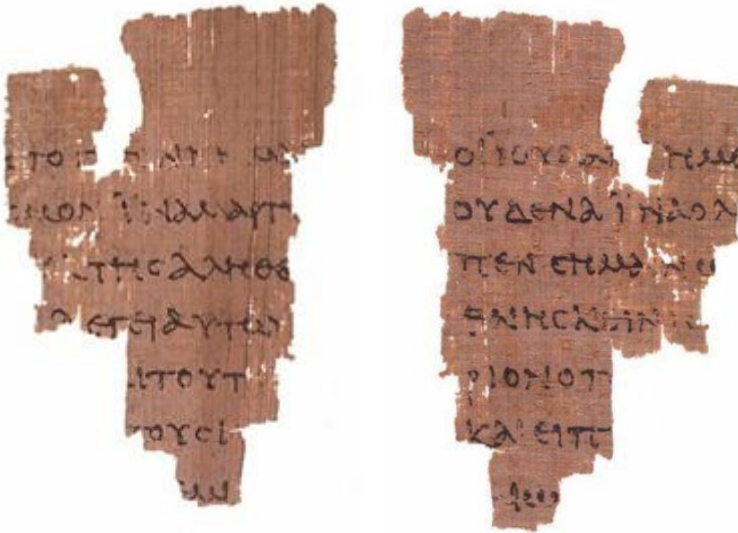 ΤΟ Γ Ν ΗΜΑΙ
ϹΜΟΝ ΪΝΑ ΜΑΡΤΥ
ΤΗϹ ΑΛΗΘΕ
ΛΕΓΕΙ ΑΥΤΩ
ΑΙ ΤΟΥΤ
ΤΟΥϹ Ι
ΜΙ
ΟΙ ΙΟΥΔΑΙ ΗΜΕ
ΟΥΔΕΝΑ ΪΝΑ Ο Λ
ΠΕΝ ϹΗΜΑΙΝΩ
ΘΝΗϹΚΕΙΝ ΙϹ
ΡΙΟΝ Ο Π
ΚΑΙ ΕΙΠ
ΑΙΩ